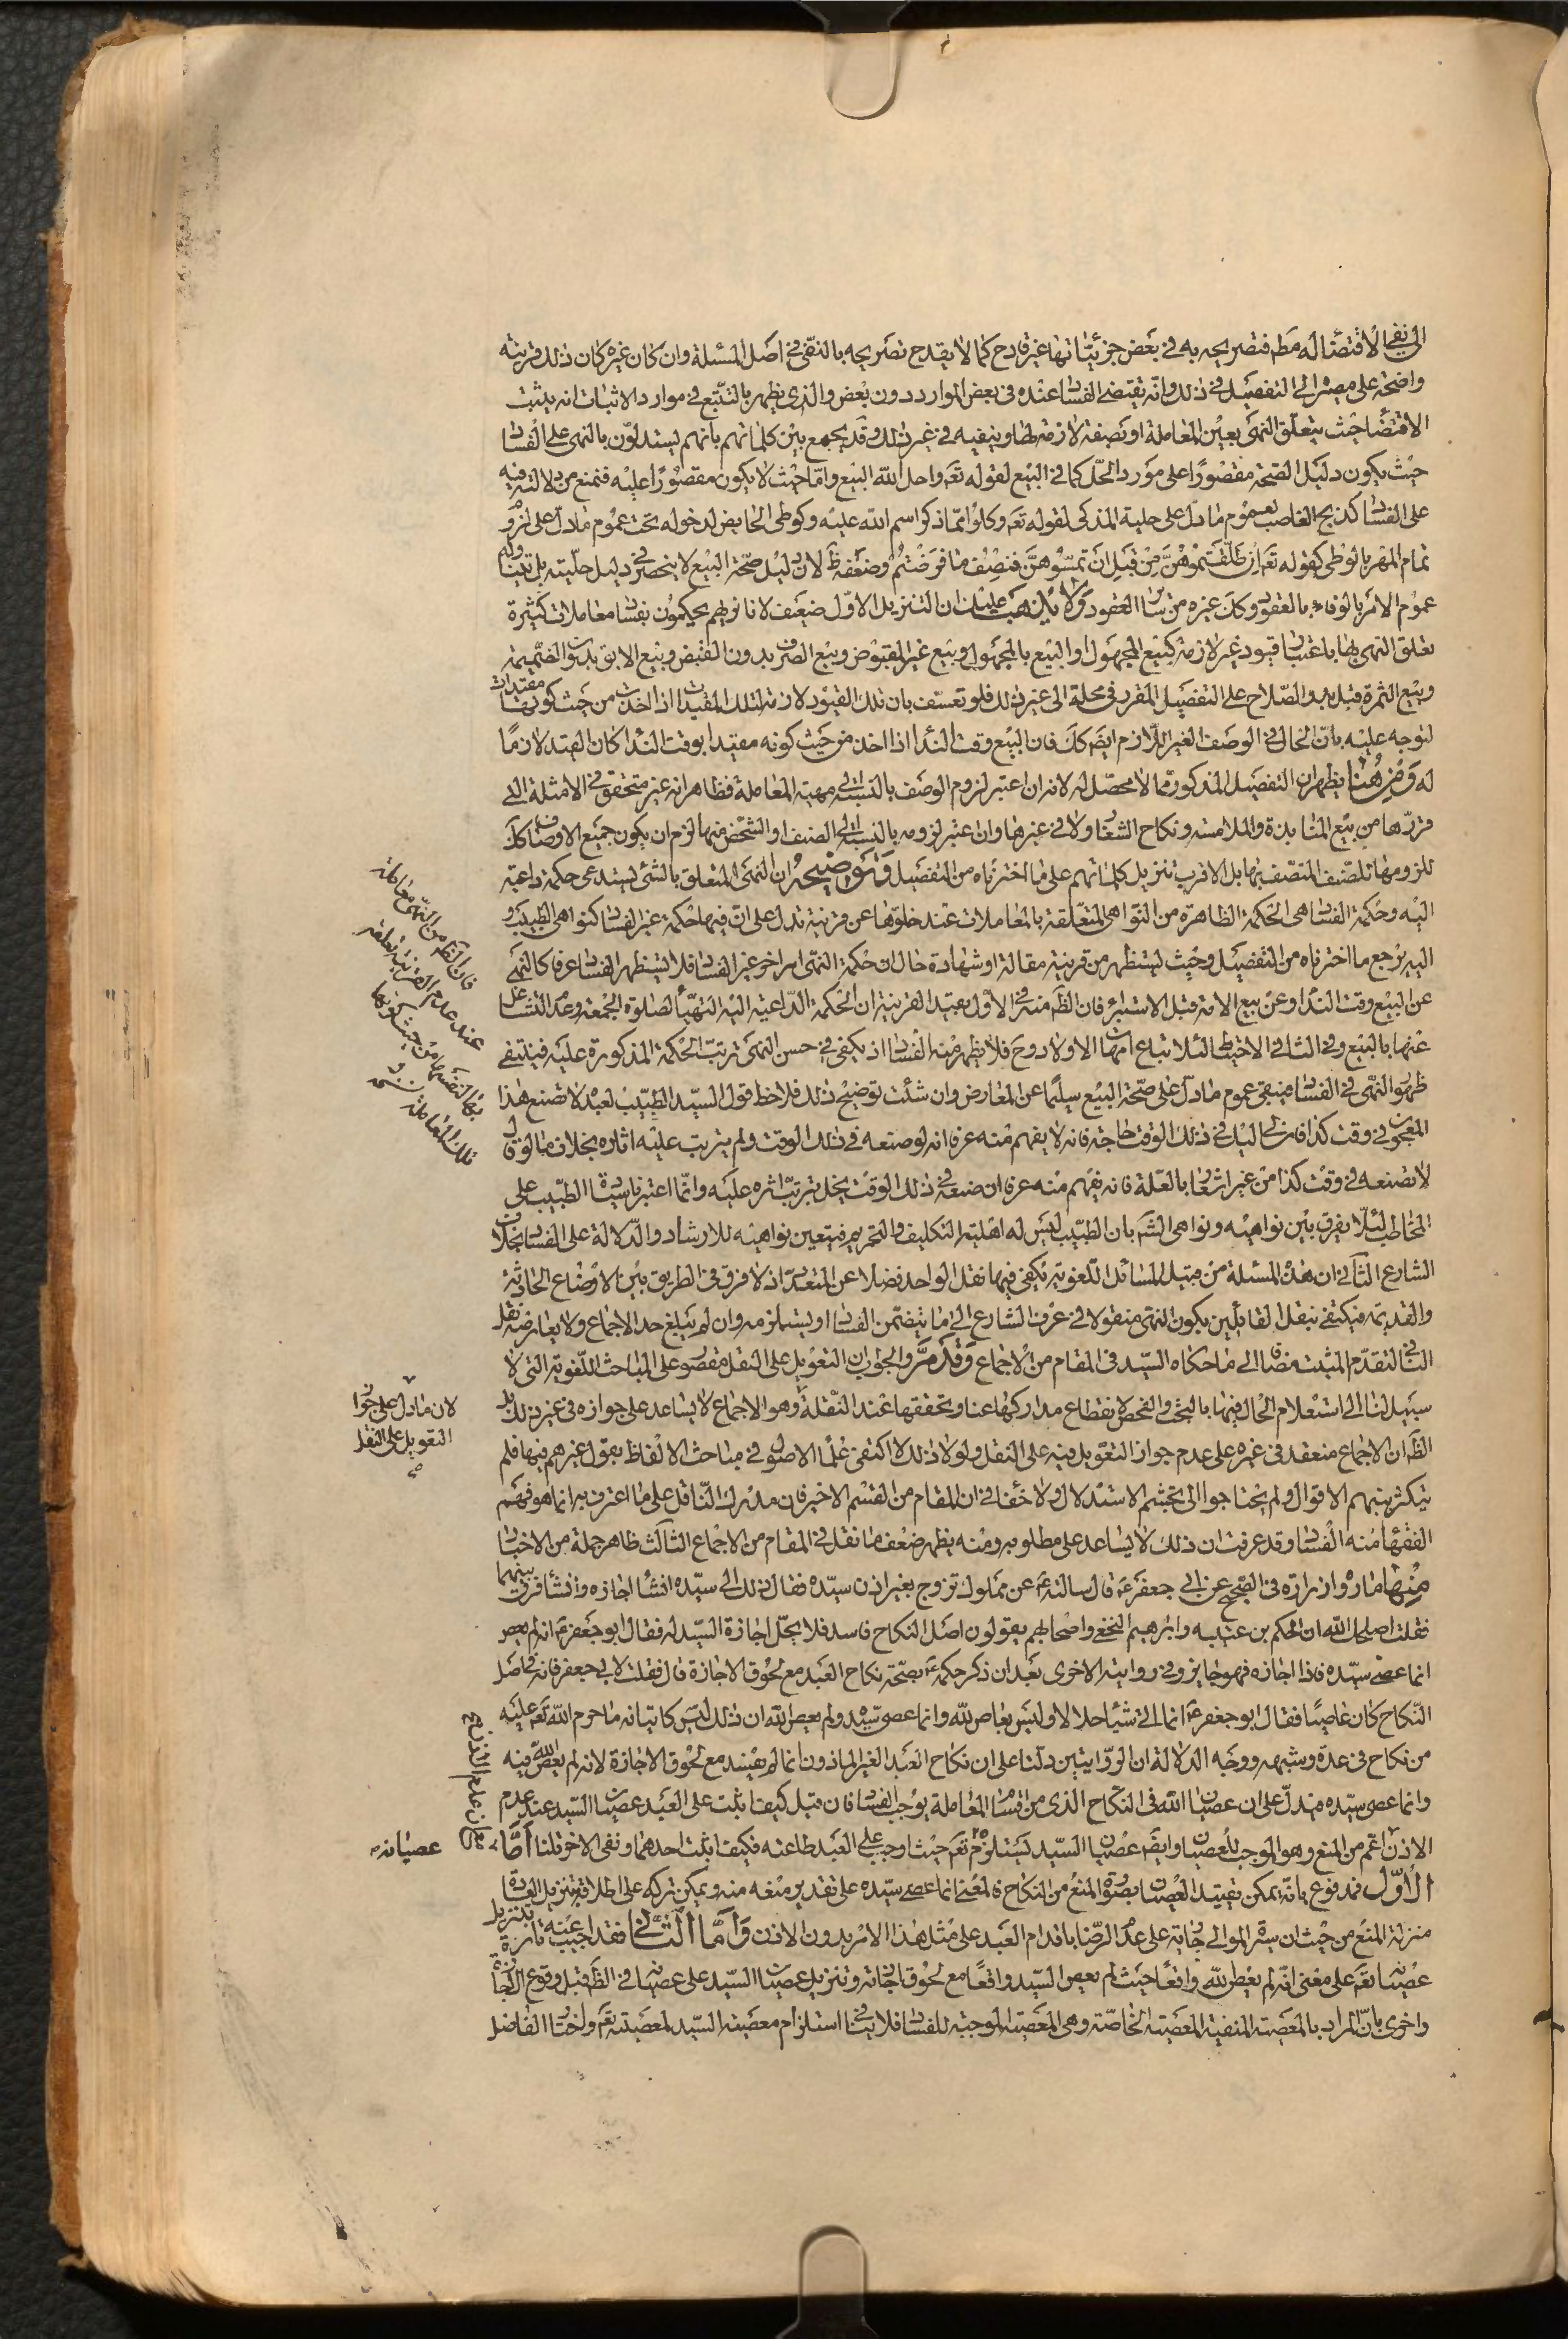 الى نفى الاقتضاء له مطم فتصريحه به فى بعض جزئيّاتها غير قادح كما لا يقدح تصريحه بالنّفى فى اصل المسئلة وان كان غيره كان ذلك قرينة
واضحة على مصيره الى التفصيل فى ذلك وانّه يقتضى الفساد عنده فى بعض الموارد دون بعض والذى يظهر بالتتبّع فى موارد الاثبات انه يثبت
الاقتضاء حيث يتعلّق النّهى بعين المعاملة او بصفة لازمة لها وينفيه فى غير ذلك وقد يجمع بين كلماتهم بانهم يستدلّون بالنهى على الفساد
حيث يكون دليل الصّحة مقصورا على مورد الحلّ كما فى البيع لقوله تعم واحل الله البيع وامّا حيث لا يكون مقصورا عليه فتمنع من دلالته فيه
على الفساد كذبح الغاصب لعموم ما دلّ على حلية المذكى لقوله تعم وكلوا ممّا ذكر اسم الله عليه وكوطى الحايض لدخوله تحت عموم ما دلّ على لزوم
تمام المهر بالوطى كقوله تعم ان طلّقتموهنّ من قبل ان تمسّوهنّ فنصف ما فرضتم وضعفه ظ لان دليل صحّة البيع لا ينحصر فى دليل حلّيته بل يتناوله
عموم الامر بالوفاء بالعقود وكك غيره من ساير العقود ولا يذهب عليك ان التنزيل الاوّل ضعيف لانا نريهم يحكمون بفساد معاملات كثيرة
تعلق النهى بها باعتبار قيود غير لازمة كبيع المجهول او البيع بالمجهول وبيع غير المقبوض وبيع الصرف بدون القبض وبيع الابق بدون الضّميمة
وبيع الثمرة قبل بدو الصّلاح على التفصيل المقرر فى محلة الى غير ذلك فلو تعسّف بان تلك القيود لازمة لتلك المقيدات اذا اخذت من حيث كونها مقيدات
لتوجه عليه بانّ الحال فى الوصف الغير اللّازم ايضم كك فان البيع وقت الندا اذا اخذ من حيث كونه مقيدا بوقت النّدا كان القيد لازمًا
له ومن هنا يظهر ان التفصيل المذكور ممّا لا محصّل له لانه ان اعتبر لزوم الوصف بالنسبة الى مهية المعاملة فظاهر انه غير متحقق فى الامثلة التى
قرّرها من بيع المنابذة والملامسة ونكاح الشغار ولا فى غيرها وان اعتبر لزومه بالنسبة الى الصنف او الشخص منها لزم ان يكون جميع الاوصاف كك
للزومها للصّنف المتصّف بها بل الاقرب تنزيل كلماتهم على ما اخترناه من التفصيل وتوضيحه ان النّهى المتعلق بالشئ يستدعى حكمة داعية
اليه وحكمة الفساد هى الحكمة الظاهرة من النواهى المتعلّقة بالمعاملات عند خلوّها عن قرينة تدل على انّ فيها حكمة غير الفساد كنواهى الطبيب و
اليه يرجع ما اخترناه من التفصيل وحيث يستظهر من قرينة مقالة او شهادة حال ان حكمة النّهى امر اخر غير الفساد فلا يستظهر الفساد عرفا كالنّهى
عن البيع وقت النّدا وعن بيع الامة قبل الاستبراء فان الظّم منه فى الاوّل بعيد القرينة ان الحكمة الدّاعية اليه التهيّأ لصلوة الجمعة وعدم التشاغل
عنها بالبيع وفى الثانى الاحتياط لئلا يتباع امهات الاولاد وح فلا يظهر منه الفساد اذ يكفى فى حسن النّهى ترتّب الحكمة المذكورة عليه فينتفى
ظهور النّهى فى الفساد فيبقى عموم ما دلّ على صحّة البيع سليمًا عن المعارض وان شئت توضيح ذلك فلاحظ قول السيّد الطبّيب لعبده لا تصنع هذا
المعجون فى وقت كذا فان لى اليك فى ذلك الوقت حاجة فانه لا يفهم منه عرفا انه لو صنعه فى ذلك الوقت ولم يترتب عليه اثاره بخلاف ما لو قال
لا تصنعه فى وقت كذا من غير اشعار بالعلّة فانه يفهم منه عرفا ان صنعه فى ذلك الوقت يخل بترتّب اثره عليه وانّما اعتبرنا سيادة الطبّيب على
المخاطب لئلّا يفرق بين نواهيه ونواهى الشم بان الطبّيب ليس له اهلية التكليف والتحريم فيتعين نواهيه للارشاد والدّلالة على الفساد بخلاف
الشارع الثانى ان هذه المسئلة من قبيل المسائل اللّغوية يكفى فيها نقل الواحد فضلا عن المتعدّد اذ لا فرق فى الطريق بين الاوضاع الحادثة
والقديمة فيكتفى بنقل القائلين بكون النّهى منقولا فى عرف الشارع الى ما يتضمّن الفساد او يستلزمه وان لم يبلغ حد الاجماع ولا يعارضه نقل
النافى لتقدّم المثبت مضافا الى ما حكاه السيّد فى المقام من الاجماع وقد مرّ والجواب ان التعويل على النقل مقصور على المباحث اللّغوية التى لا
سبيل لنا الى استعلام الحال فيها بالبحث والفحص لانقطاع مداركها عنا وتحققها عند النّقلة وهو الاجماع لا يساعد على جوازه فى غير ذلك بل
الظّم ان الاجماع منعقد فى غيره على عدم جواز التعويل فيه على النقل ولولا ذلك لاكتفى علماء الاصول فى مباحث الالفاظ بقول غيرهم فيها فلم
يتكثر بينهم الاقوال ولم يحتاجوا الى تجشم الاستدلال ولا خفاء فى ان المقام من القسم الاخير فان مدرك النّاقل على ما اعترف به انما هو فهم
الفقهاء منه الفساد وقد عرفت ان ذلك لا يساعد على مطلوبه ومنه يظهر ضعف ما نقل فى المقام من الاجماع الثالث ظاهر جملة من الاخبار
منها ما رواه زرارة فى الصّحيح عن ابى جعفر عم قال سالته عن مملوك تزوج بغير اذن سيّده فقال ذلك الى سيّده انشاء اجازه وانشاء فرق بينهما
فقلت اصلحك الله ان الحكم بن عتيبه وابرهيم النخعى واصحابهم يقولون اصل النكاح فاسد فلا يحلّ اجازة السّيد له فقال ابو جعفر عم انه لم يعص
انما عصى سيّده فاذا اجازه فهو جايز وفى روايته الاخرى بعد ان ذكر حكمه عم بصّحة نكاح العبد مع لحوق الاجازة قال فقلت لابى جعفر فانه فى اصل
النّكاح كان عاصيًا فقال ابو جعفر عم انما اتى شيئا حلالا وليس بعاص لله وانما عصى سيّده ولم يعص الله ان ذلك ليس كاتيانه ما حرم الله تعم عليه
من نكاح فى عدّة وشبهه ووجه الدلالة ان الرّوايتين دلّتا على ان نكاح العبد الغير الماذون انما لم يفسد مع لحوق الاجازة لانه لم يعص الله فيه
وانما عصى سيّده فيدلّ على ان عصيان الله فى النّكاح الذى من اقسام المعاملة يوجب الفساد فان قيل كيف ثبت على العبد عصيان السّيد عند عدم
الاذن اعم من المنع وهو الموجب للعصيان وايضم عصيان السّيد يستلزم تعم حيث اوجب على العبد طاعته فكيف اثبت احدهما ونفى الاخر قلنا امّا
الاوّل فمدفوع بانّه يمكن تقييد العصيان بصورة المنع من النكاح فالمعنى انما عصى سيّده على تقدير منعه منه ويمكن تركه على اطلاقه بتنزيل العادة
منزلة المنع من حيث ان سيرة الموالى جارية على عدم الرّضا باقدام العبد على مثل هذا الامر بدون الاذن وامّا الثّانى فقد اجيب عنه تارة بتنزيل
عصيانه تعم على معنى انّه لم يعص الله واقعًا حيث لم يعص السيّد واقعًا مع لحوق اجازته وتنزيل عصيان السيّد على عصيانها فى الظّم قبل وقوع الاجازة
واخرى بانّ المراد بالمعصية المنفية المعصية الخاصّة وهى المعصية الموجبة للفساد فلا ينافى استلزام معصية السيّد لمعصيته تعم واختار الفاضل
فان الظّم من النّهى عن معاملة
عند عدم القرينة تعلقه
بها لنفسها من حيث كونها
تلك المعاملة
لان ما دلّ على جواز
التعويل على النقل
صح
مع ان عدم الاذن
عصيانه